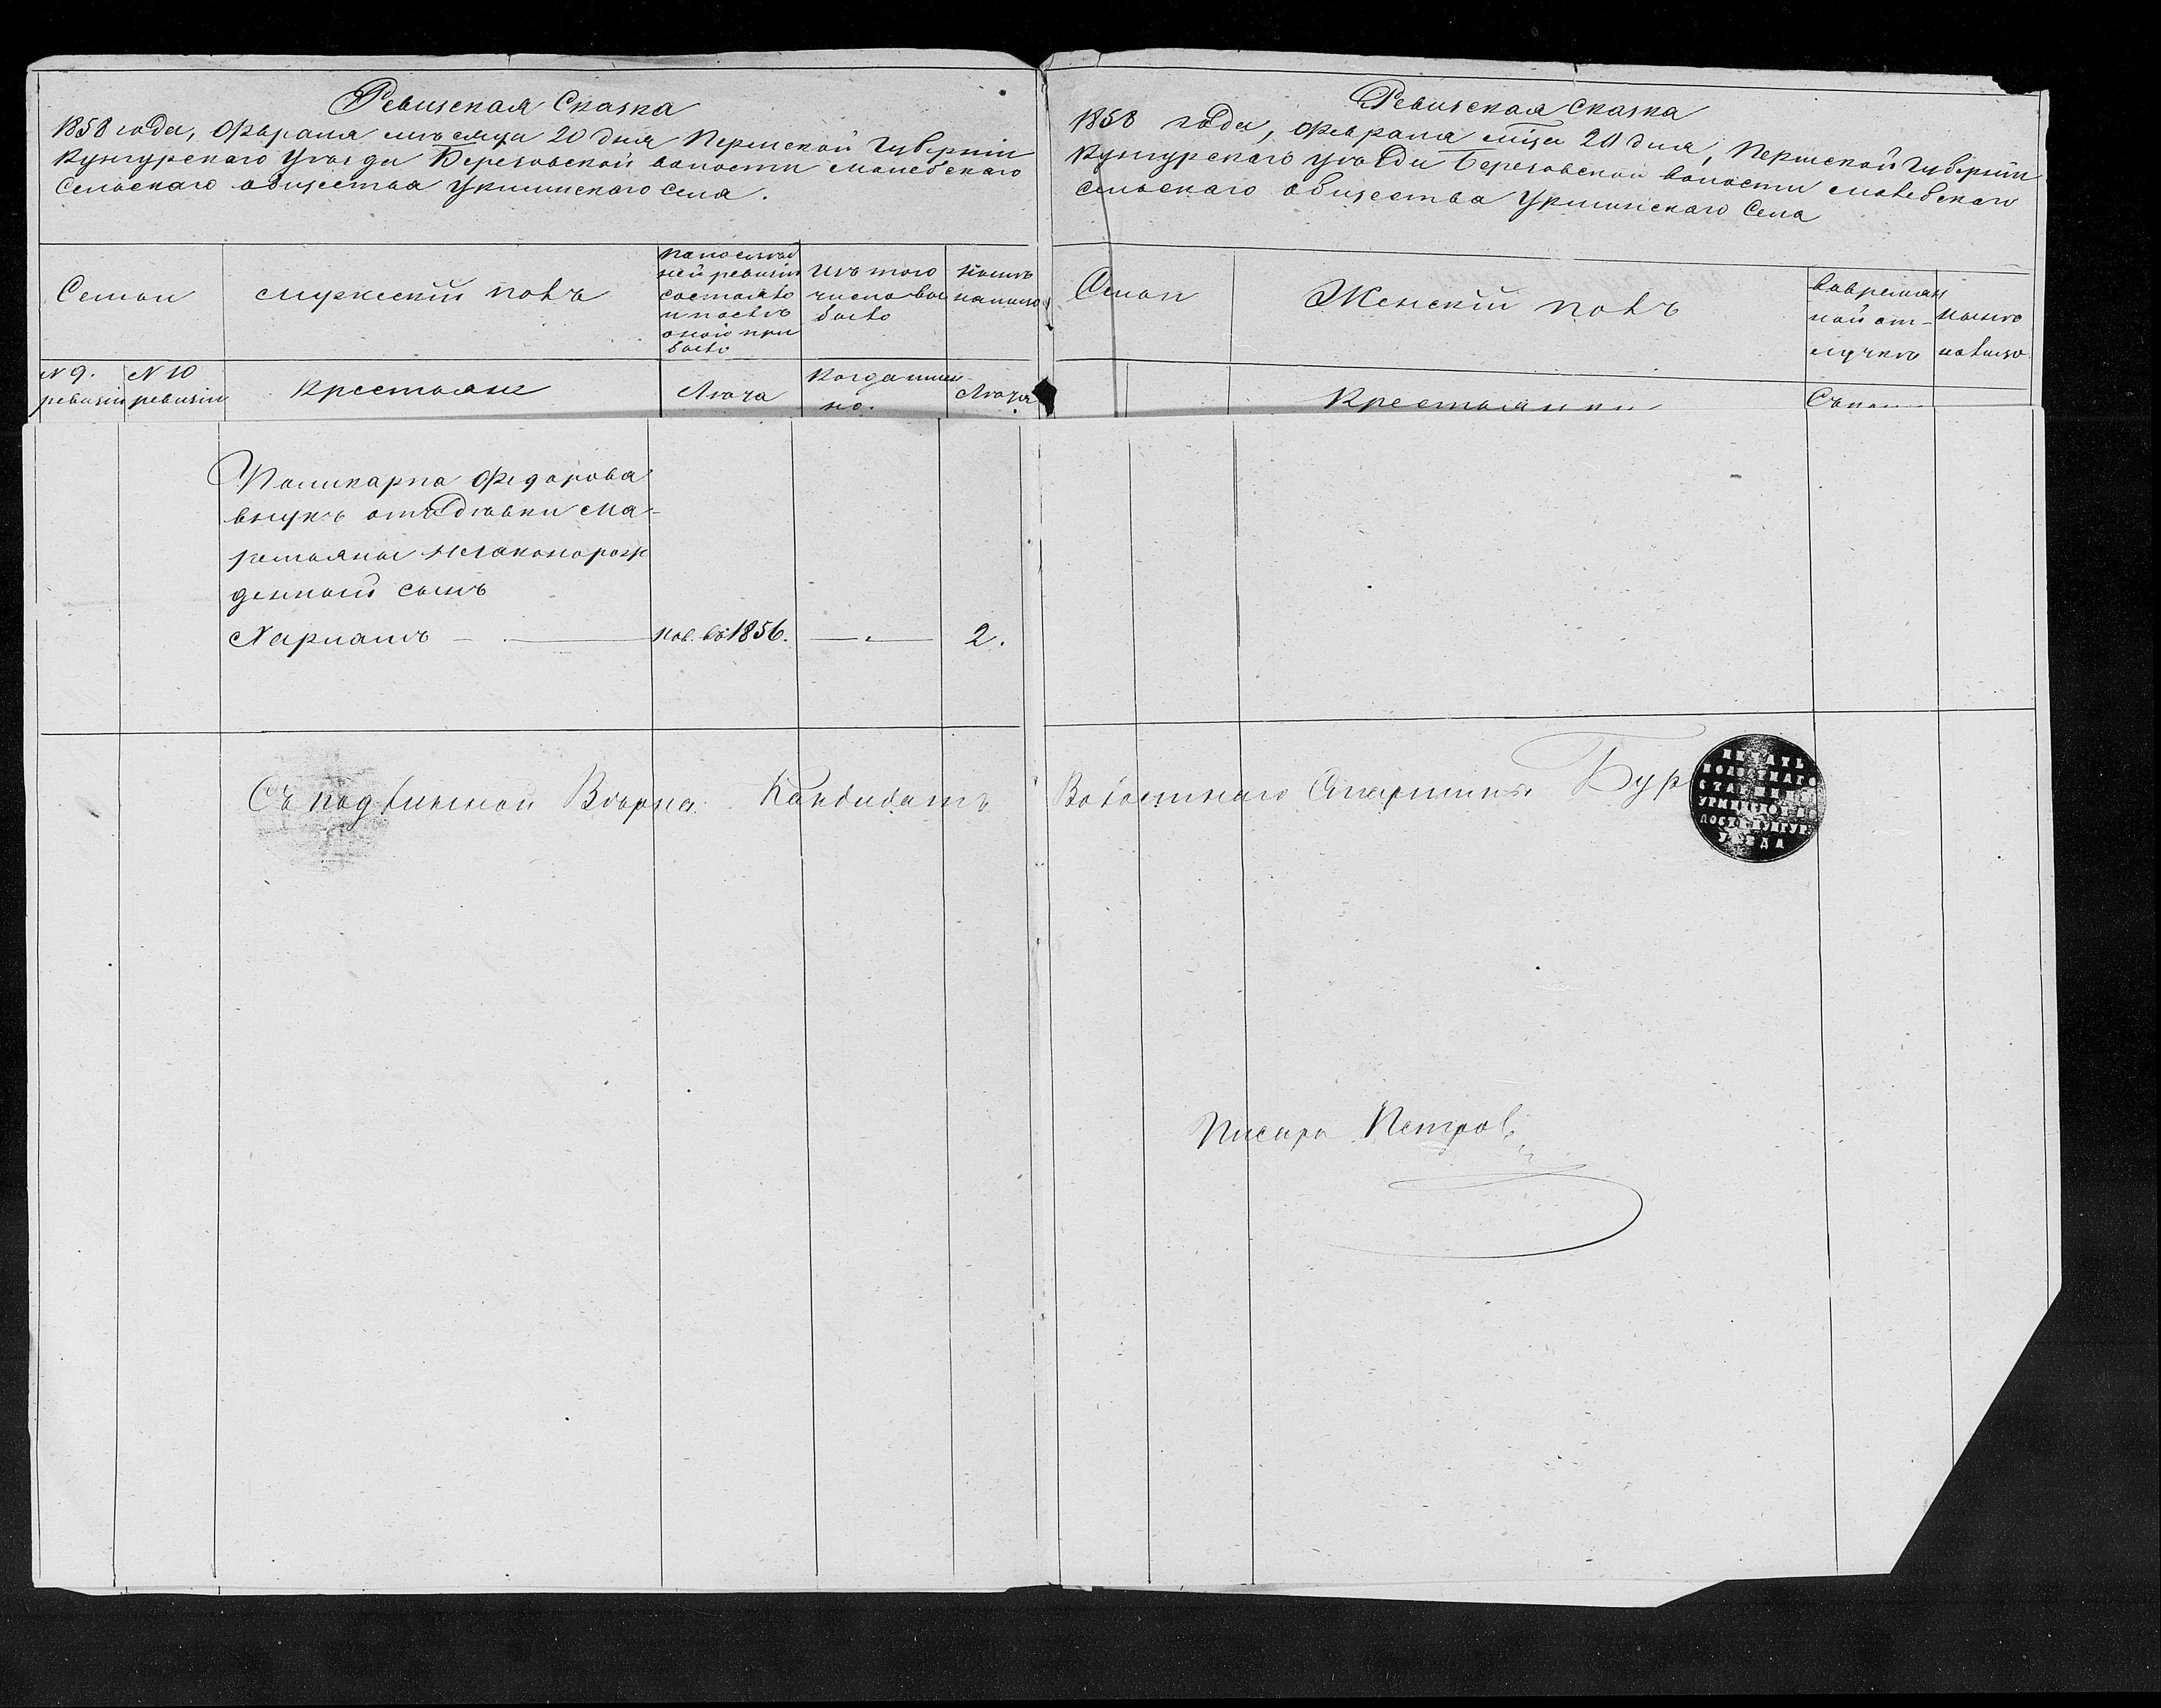 Ревизская Сказка
1858 года, Февраля месяца 20 дня Пермской Губернiи
Кунгурскаго Уѣзда Березовской волости
Сельскаго общества Урминскаго села.
Семьи
мужескiй полъ
по послѣд
ней ревизiи
состояло
и послѣ
оной при
было
Изъ того
числа вы
было
Нынѣ
на лицо
N 9.
ревизiи
N 10
ревизiи
Крестьяне
Лѣта
Когда имен
но.
Лѣта
Поликарпа Федорова
внукъ отъ дѣвки Ма
ремьяны незаконорож
денный сынъ
нов. въ 1856.
2.
Ревизская Сказка
1858 года, Февраля мѣца 20 дня, Пермской Губернiи
Кунгурскаго уѣзда Березовской волости
сельскаго общества Урминскаго Села
Семьи
Женскiй полъ
Во времян
ной от-
лучкѣ
Нынѣ
на лицо
Крестьянки
Съ подлинной Вѣрно: Кандидатъ Волостнаго Старшины
ПЕЧАТЬ
ВОЛОСТНАГО
СТАРШИНЫ
УРМИНСКОЙ ВО
ЛОСТИ КУНГУР.
УѢЗДА
Писарь Петровъ